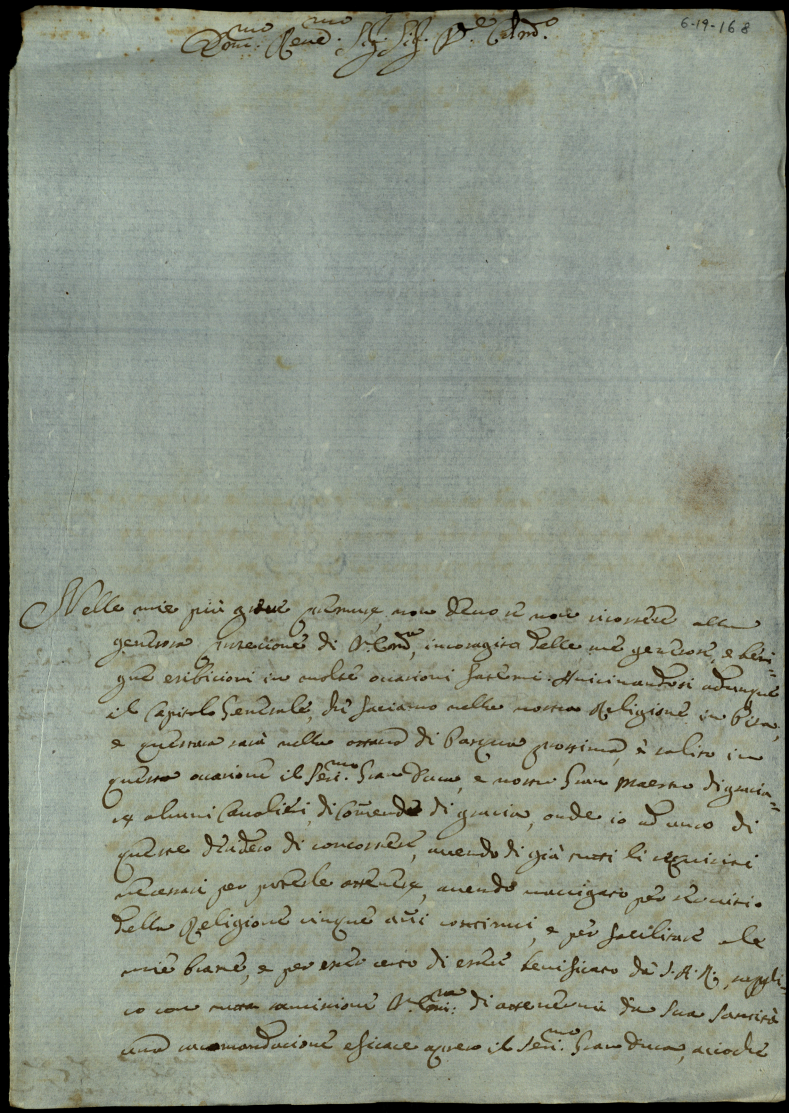 6-19-168
Em:mo Reue:mo Sig: Sig: P:ne Col:mo
Nelle mie più graui premure, non deuo se non ricorrere alla
generosa protezione di V. Em:a, incoragito delle sue generose, e beni=
gne esibicioni in molte occasioni fatemi. Auicinandosi adunque
il Capitolo Generale, che faciamo nella nostra Religione in Pisa,
e questa sarà nella ottaua di Pasqua prossima, è solito in
questa occasione il Ser:mo Gran Duca, e nostro Gran Maestro di gracia=
re alcuni Caualieri, di Comende di gracia, onde io ad una di
queste desidero di concorrere, auendo di già tutti li requisiti
necessari per poterle ottenere, auendo nauigato per seruitio
della Religione cinque anni continui, e per facilitare le
mie brame, e per esser certo di essere beneficato da S. A. R., suppli=
co con tutta sumissione V. Em:a di ottenermi da Sua Santità
una racomandacione eficace apreso il Ser:mo Gran Duca, acioche